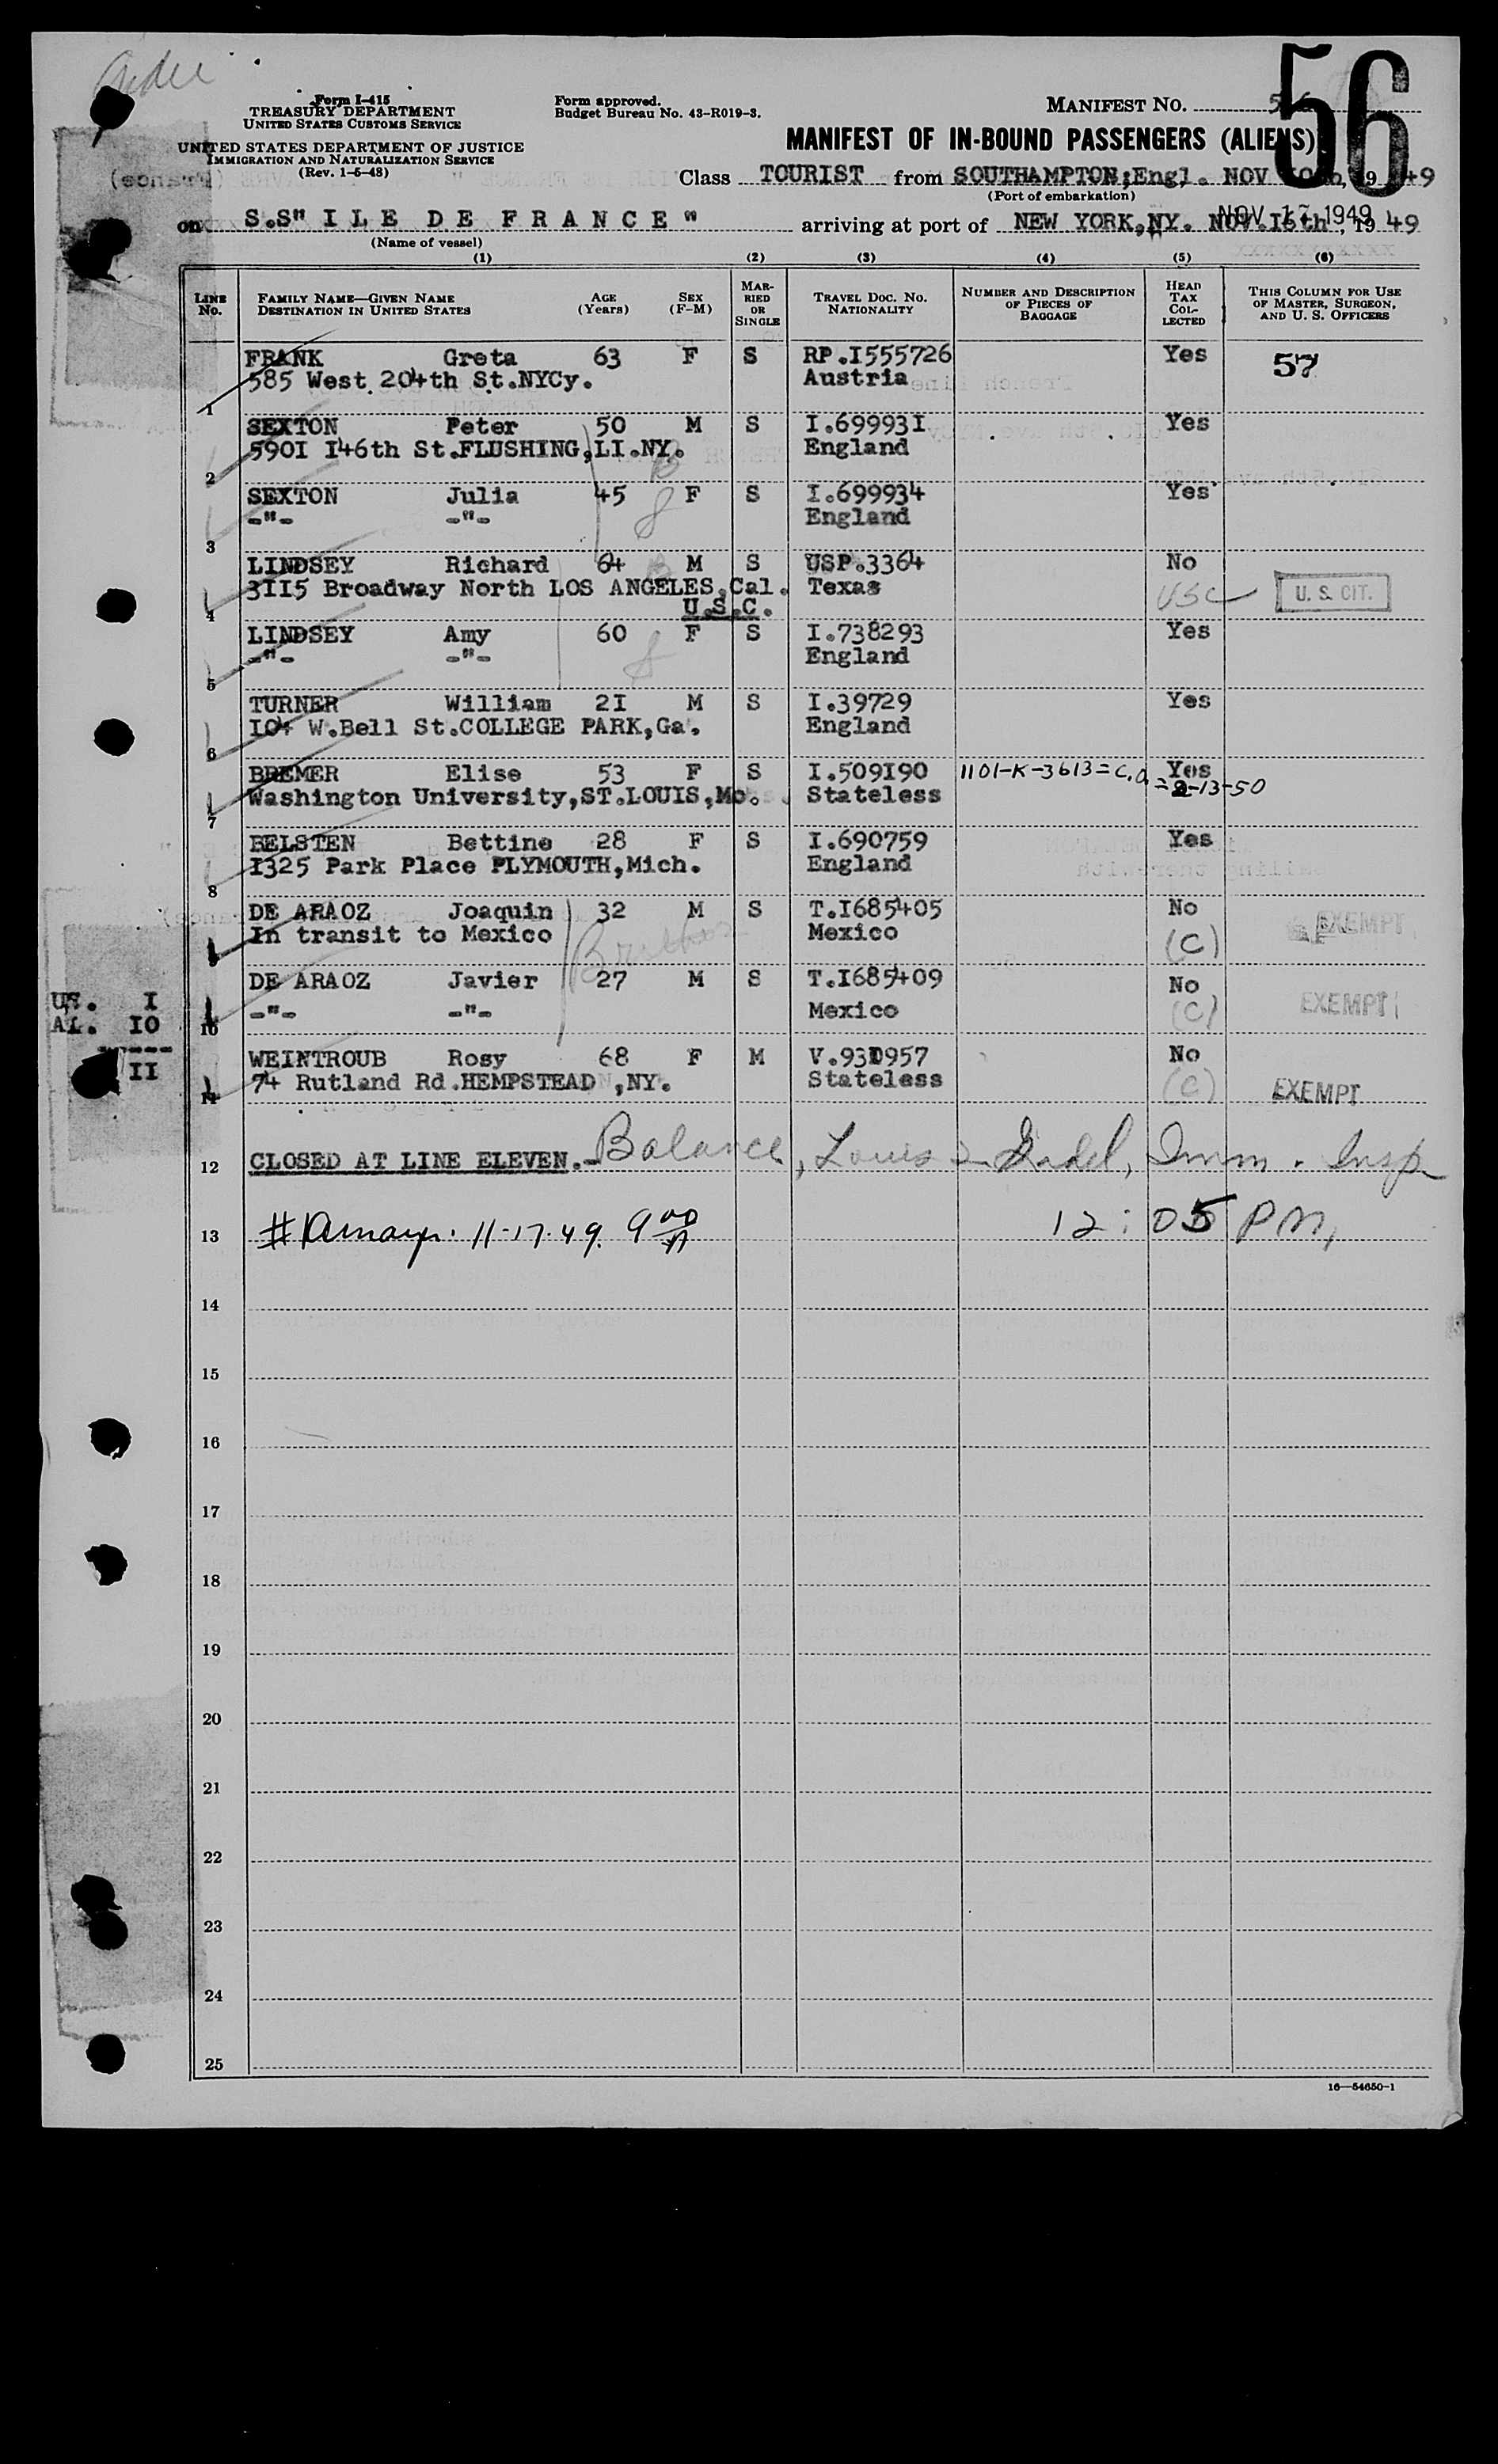 56
Form I-415
TREASURY DEPARTMENT
UNITED STATES CUSTOMS SERVICE
UNITED STATES DEPARTMENT OF JUSTICE
IMMIGRATION AND NATURALIZATION SERVICE
(Rev. 1-5-48)
Form approved.
Budget Bureau No. 43-R019-3.
MANIFEST NO.
MANIFEST OF IN-BOUND PASSENGERS (ALIENS)
Class TOURIST from SOUTHAMPTON;Engl. NOV 10th, 19 49
(Port of embarkation)
NOV 17 1949
on S.S" I L E D E F R A N C E" arriving at port of NEW YORK,NY. NOV.I6th, 19 49
(Name of vessel)
(1) (2) (3) (4) (5) (6)
LINE No. FAMILY NAME—GIVEN NAME DESTINATION IN UNITED STATES AGE (Years) SEX (F-M) MARRIED OR SINGLE TRAVEL DOC. NO. NATIONALITY NUMBER AND DESCRIPTION OF PIECES OF BAGGAGE HEAD TAX COLLECTED THIS COLUMN FOR USE OF MASTER, SURGEON, AND U. S. OFFICERS
FRANK Greta 63 F S RP.I555726 Yes 57
585 West 204th St.NYCy. Austria
1
SEXTON Peter 50 M S I.69993I Yes
590I I46th St.FLUSHING,LI.NY. England
2
SEXTON Julia 45 F S I.699934 Yes
-"- -"- England
3
LINDSEY Richard 64 M S USP.3364 No
3II5 Broadway North LOS ANGELES.Cal. Texas USC U. S. CIT.
U.S.C.
4
LINDSEY Amy 60 F S I.738293 Yes
-"- -"- England
5
TURNER William 2I M S I.39729 Yes
I04 W.Bell St.COLLEGE PARK,Ga. England
6
BREMER Elise 53 F S I.509I90 1101-K-3613=C.O. Yes
Washington University,ST.LOUIS,Mo. Stateless =2-13-50
7
BELSTEN Bettine 28 F S I.690759 Yes
I325 Park Place PLYMOUTH,Mich. England
8
DE ARAOZ Joaquin 32 M S T.I685405 No
In transit to Mexico Brothers Mexico (C) EXEMPT
9
DE ARAOZ Javier 27 M S T.I685409 No
-"- -"- Mexico (C) EXEMPT
US. I
AL. IO
-----
II
10
WEINTROUB Rosy 68 F M No
74 Rutland Rd.HEMPSTEAD ,NY. Stateless (C) EXEMPT
11
12 CLOSED AT LINE ELEVEN.- Balance, Louis Imm. Insp
13 11-17-49. 9 00 12:05 PM,
14
15
16
17
18
19
20
21
22
23
24
25
16—54650-1